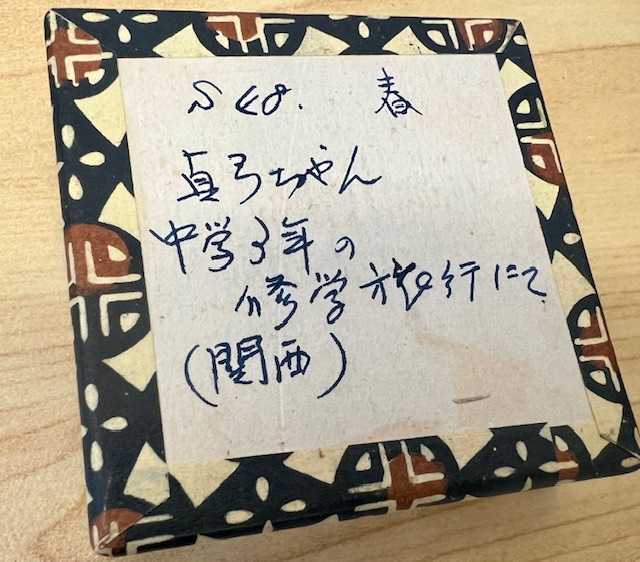 S48. 春
真弓ちゃん
中学3年の
修学旅行にて
(関西)